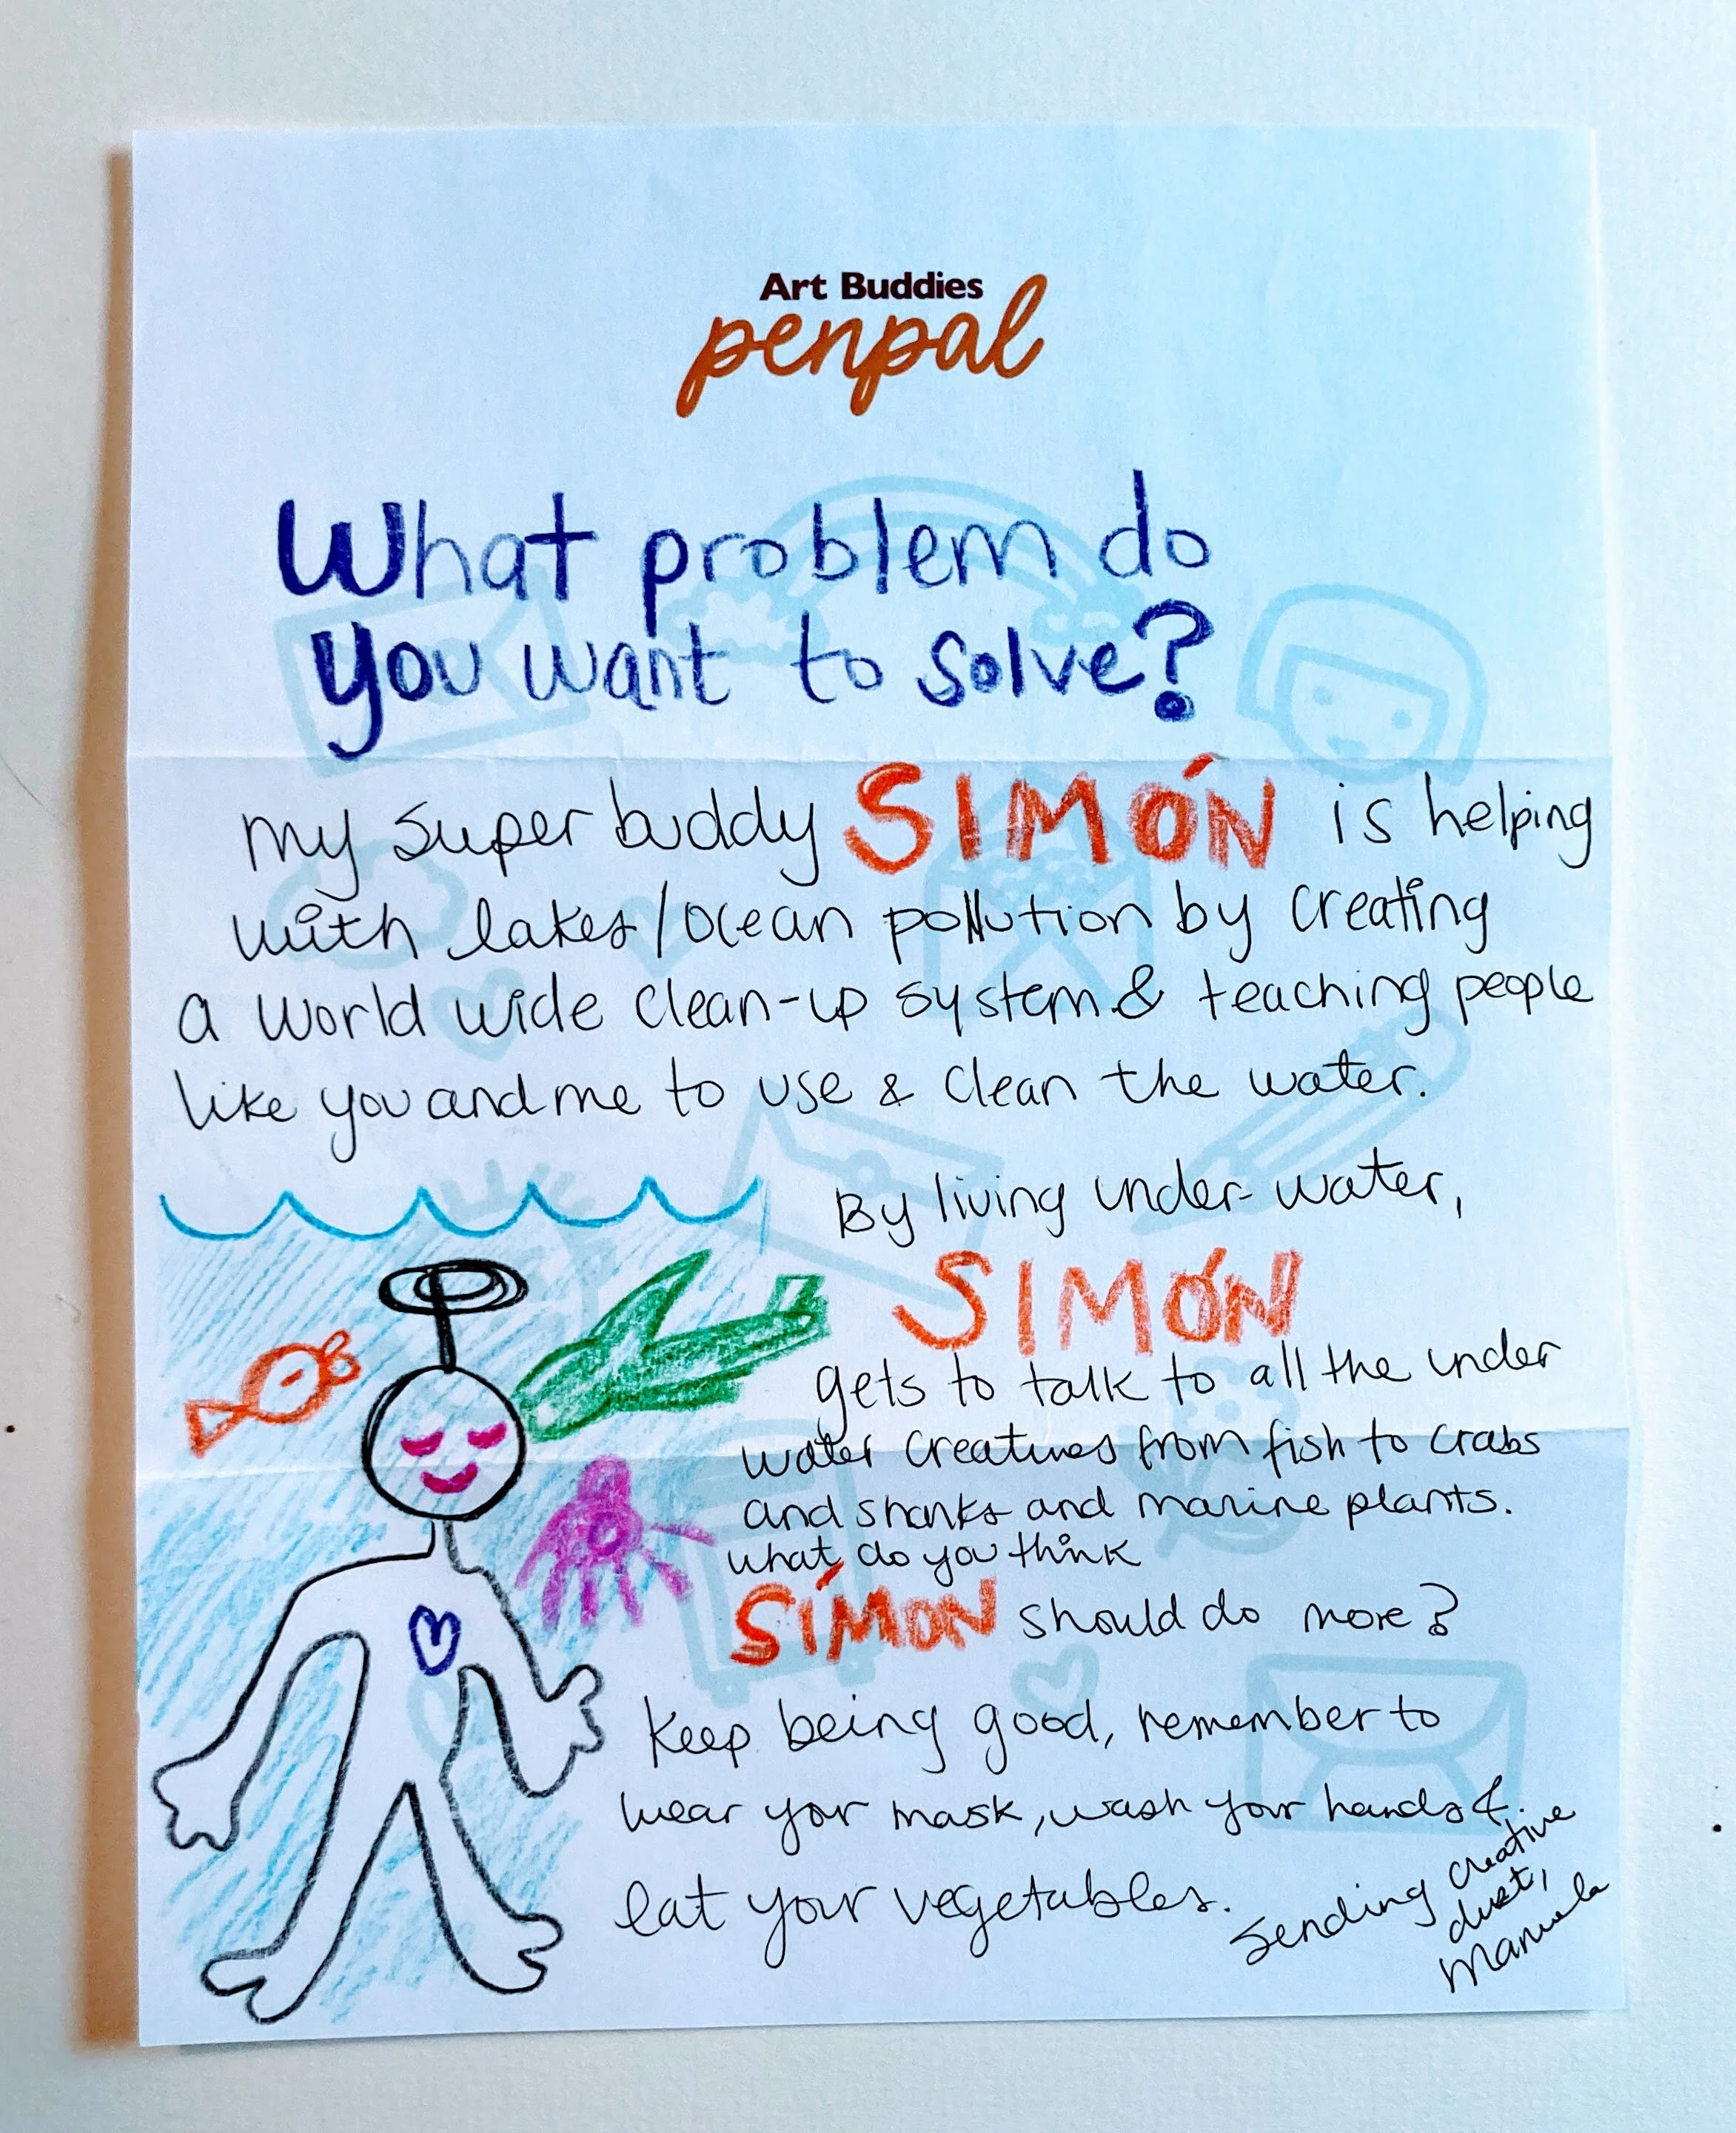 Art Buddies
penpal
What problem do
you want to solve?
my super buddy SIMÓN is helping
with lakes/ocean pollution by creating
a world wide clean-up system & teaching people
like you and me to use & clean the water.
By living under-water,
SIMÓN
gets to talk to all the under
water creatures from fish to crabs
and sharks and marine plants.
what do you think
SÍMON should do more?
Keep being good, remember to
wear your mask, wash your hands &
eat your vegetables.
Sending creative
dust,
Manuela